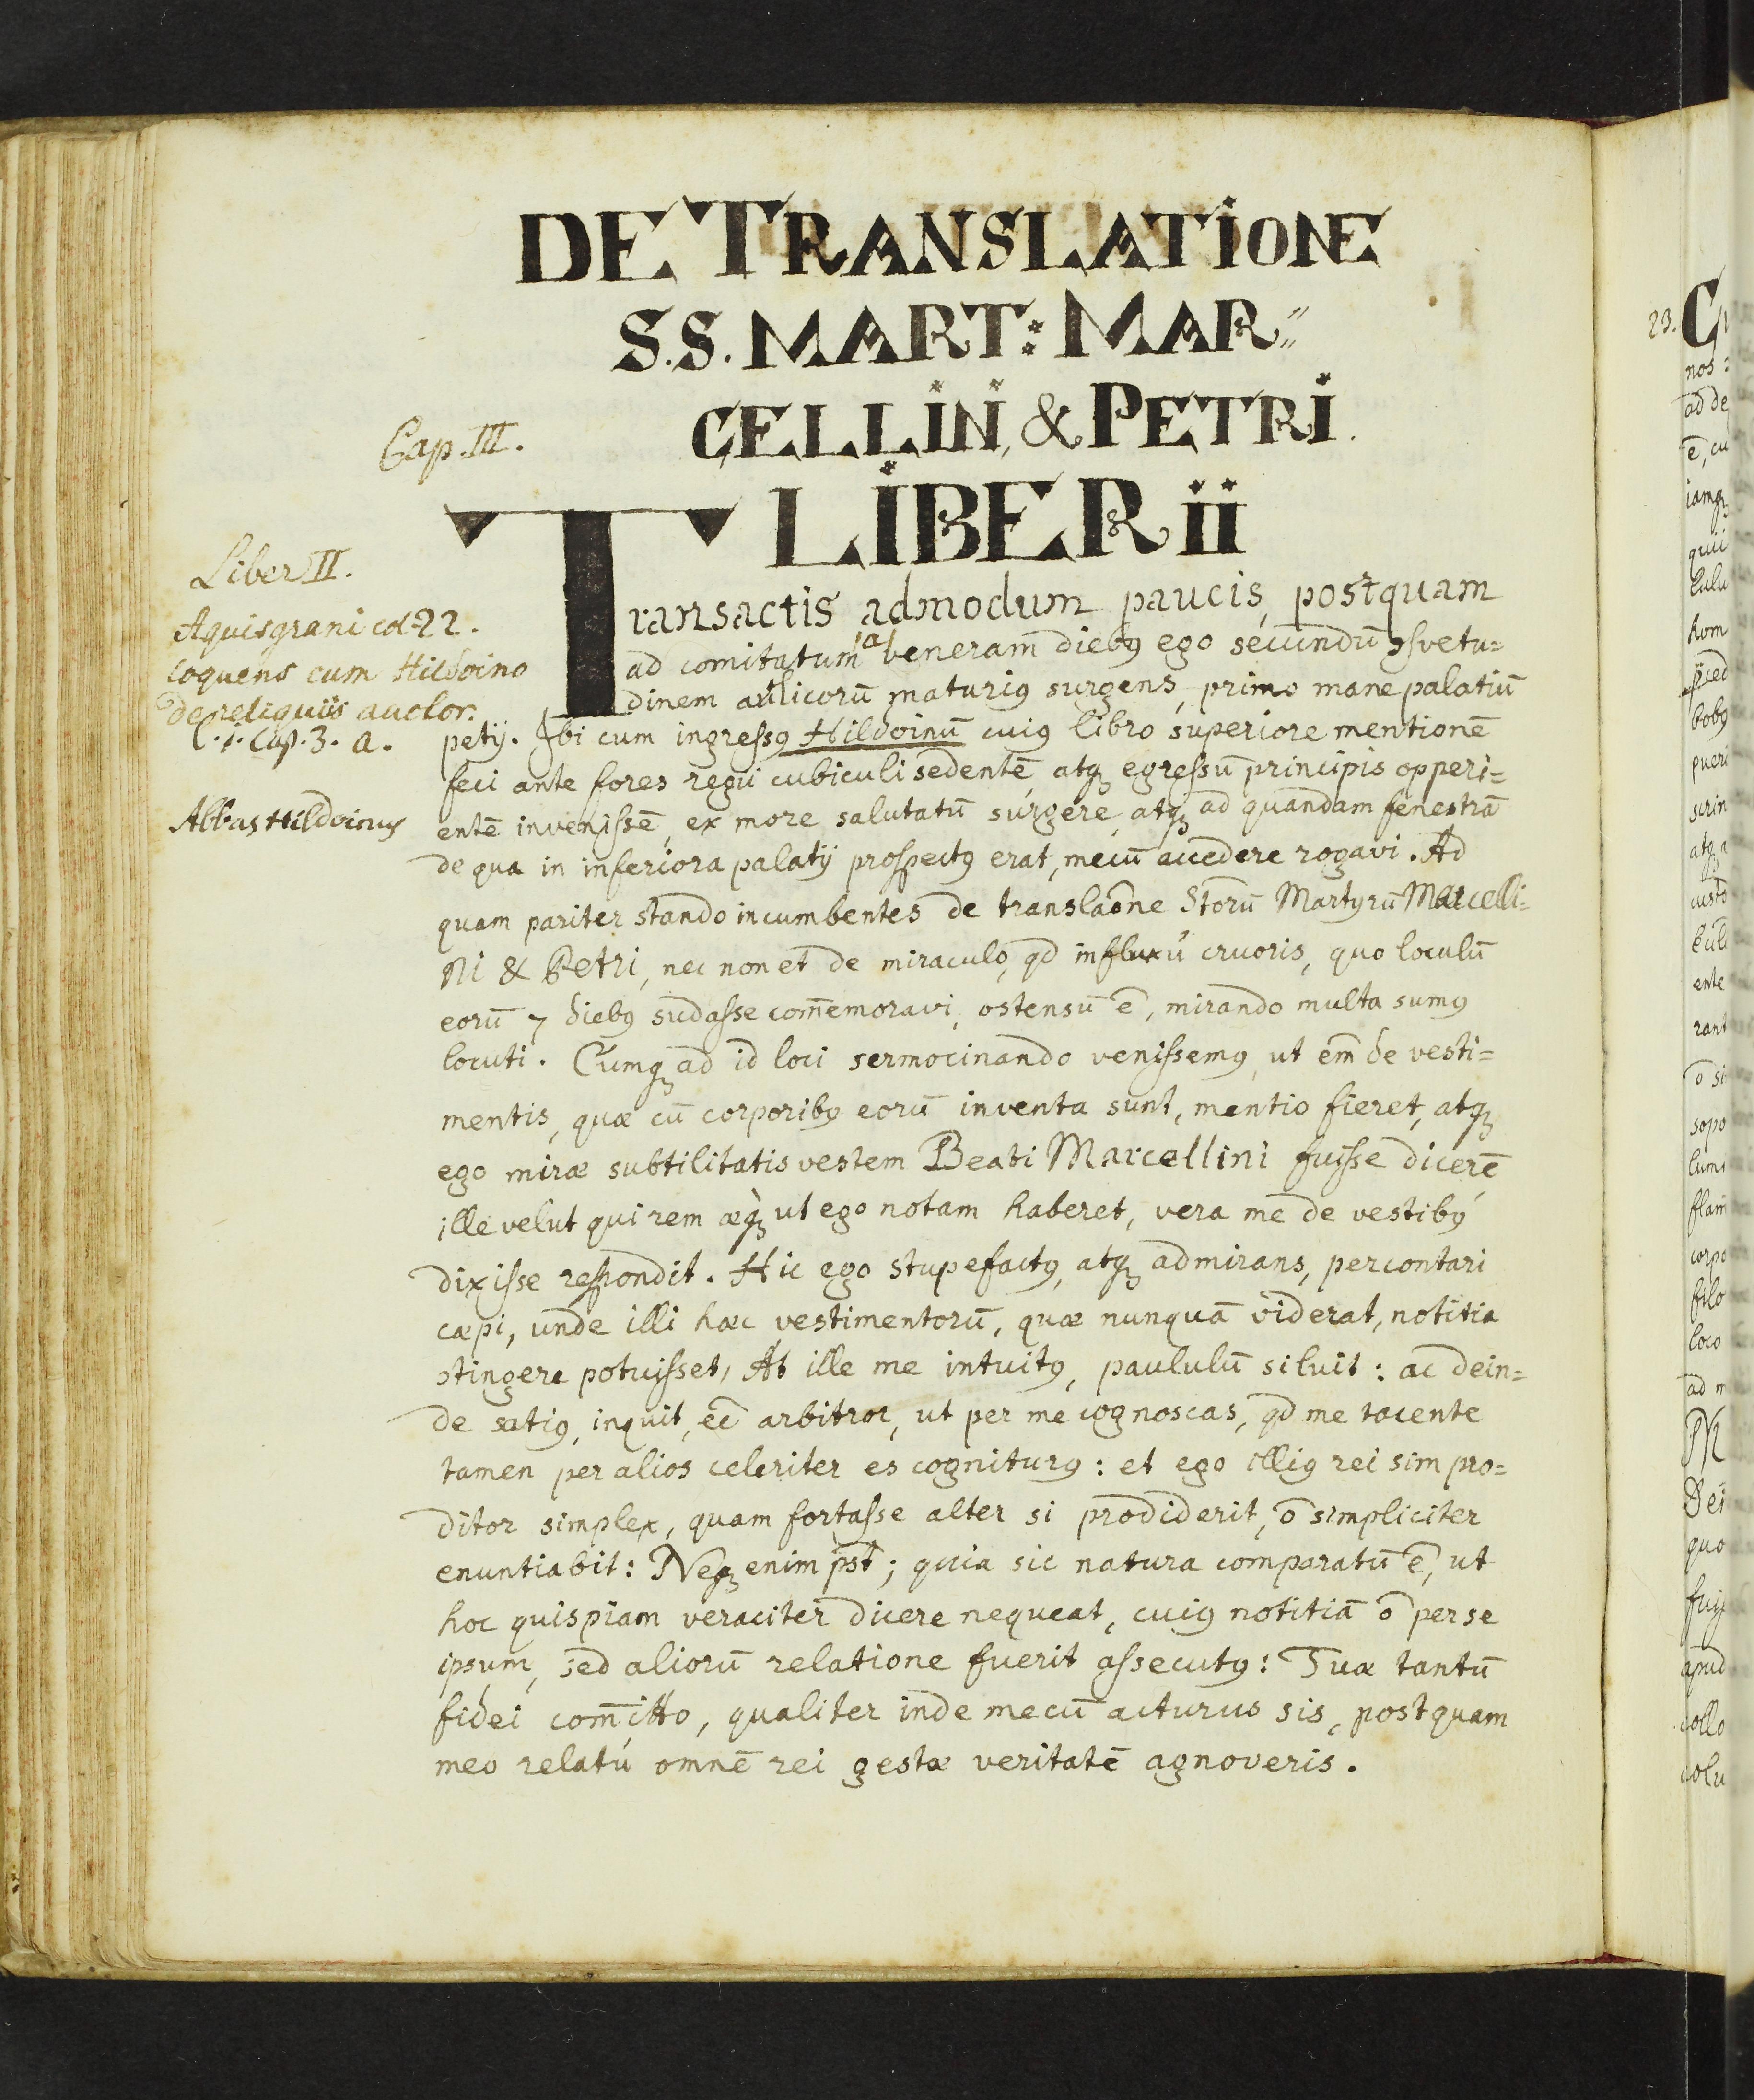 DE TRANSLATIONE
S.S. MART: MAR=
CELLINI, & PETRI.
Cap. III.
LIBER ii
Liber II.
Aquisgrani col. 22.
loquens cum Hildoino
de reliquiis auctor.
l. 1. cap. 3. a.
Abbas Hildoinꝰ
Transactis admodum paucis, postquam
ad comitatum a veneram diebꝰ ego secundū ꝯsvetu=
dinem aulicorū maturiꝰ surgens, primo mane palatiū
petij. Ibi cum ingressꝰ Hildoinū cuiꝰ libro superiore mentionē
feci ante fores regii cubiculi sedentē atqꝫ egressū principis opperi=
entē invenissē, ex more salutatū surgere, atqꝫ ad quandam fenestrā
de qua in inferiora palatij prospectꝰ erat, mecū accedere rogavi. Ad
quam pariter stando incumbentes de translaōne Storū Martyrū Marcelli=
ni & Petri, nec non et de miraculo, qd in fluxu cruoris, quo loculū
eorū 7 diebꝰ sudasse com̄emoravi, ostensū ē, mirando multa sumꝰ
locuti. Cumqꝫ ad id loci sermocinando venissemꝰ, ut em̄ de vesti=
mentis, quæ cū corporibꝰ eorū inventa sunt, mentio fieret, atqꝫ
ego miræ subtilitatis vestem Beati Marcellini fuisse dicerē
ille velut qui rem æqꝫ̀ ut ego notam haberet, vera me de vestibꝰ
dixisse respondit. Hic ego stupefactꝰ, atqꝫ admirans, percontari
cæpi, unde illi hæc vestimentorū, quæ nunquā viderat, notitia
ꝯtingere potuisset, At ille me intuitꝰ, paululū siluit: ac dein=
de satiꝰ, inquit, eē arbitror, ut per me cognoscas, qd me tacente
tamen per alios celeriter es cogniturꝰ: et ego illiꝰ rei sim pro=
ditor simplex, quam fortasse alter si prodiderit, ō simpliciter
enuntiabit: Neqꝫ enim pst̄; quia sic natura comparatū ē, ut
hoc quispiam veraciter dicere nequeat, cuiꝰ notitiā ō per se
ipsum, sed aliorū relatione fuerit assecutꝰ: Tuæ tantū
fidei com̄itto, qualiter inde mecū acturus sis, postquam
meo relatu omnē rei gestæ veritatē agnoveris.
23.